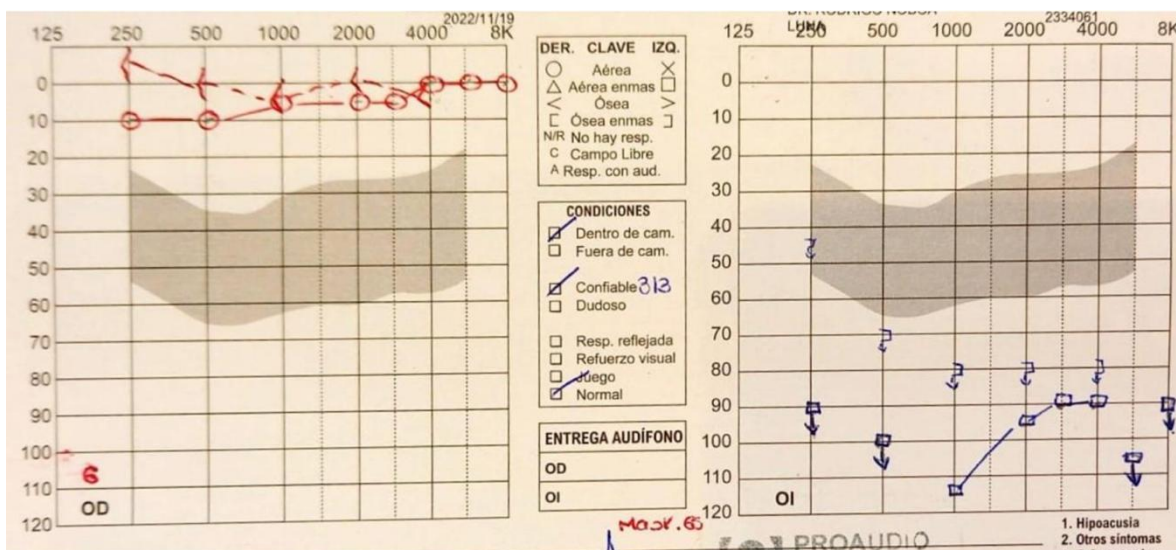 2022/11/19
125 250 500 1000 2000 4000 8K
0
10
20
30
40
50
60
70
80
90
100
110
120
6
OD
DER. CLAVE IZQ.
Aérea
Aérea enmas
Ósea
Ósea enmas
N/R No hay resp.
C Campo Libre
A Resp. con aud.
CONDICIONES
Dentro de cam.
Fuera de cam.
Confiable 3/3
Dudoso
Resp. reflejada
Refuerzo visual
Juego
Normal
ENTREGA AUDÍFONO
OD
OI
Mask. 65
DR. RODRIGO
LUNA
2334061
125 250 500 1000 2000 4000 8K
0
10
20
30
40
50
60
70
80
90
100
110
120
OI
PROAUDIO
1. Hipoacusia
2. Otros síntomas